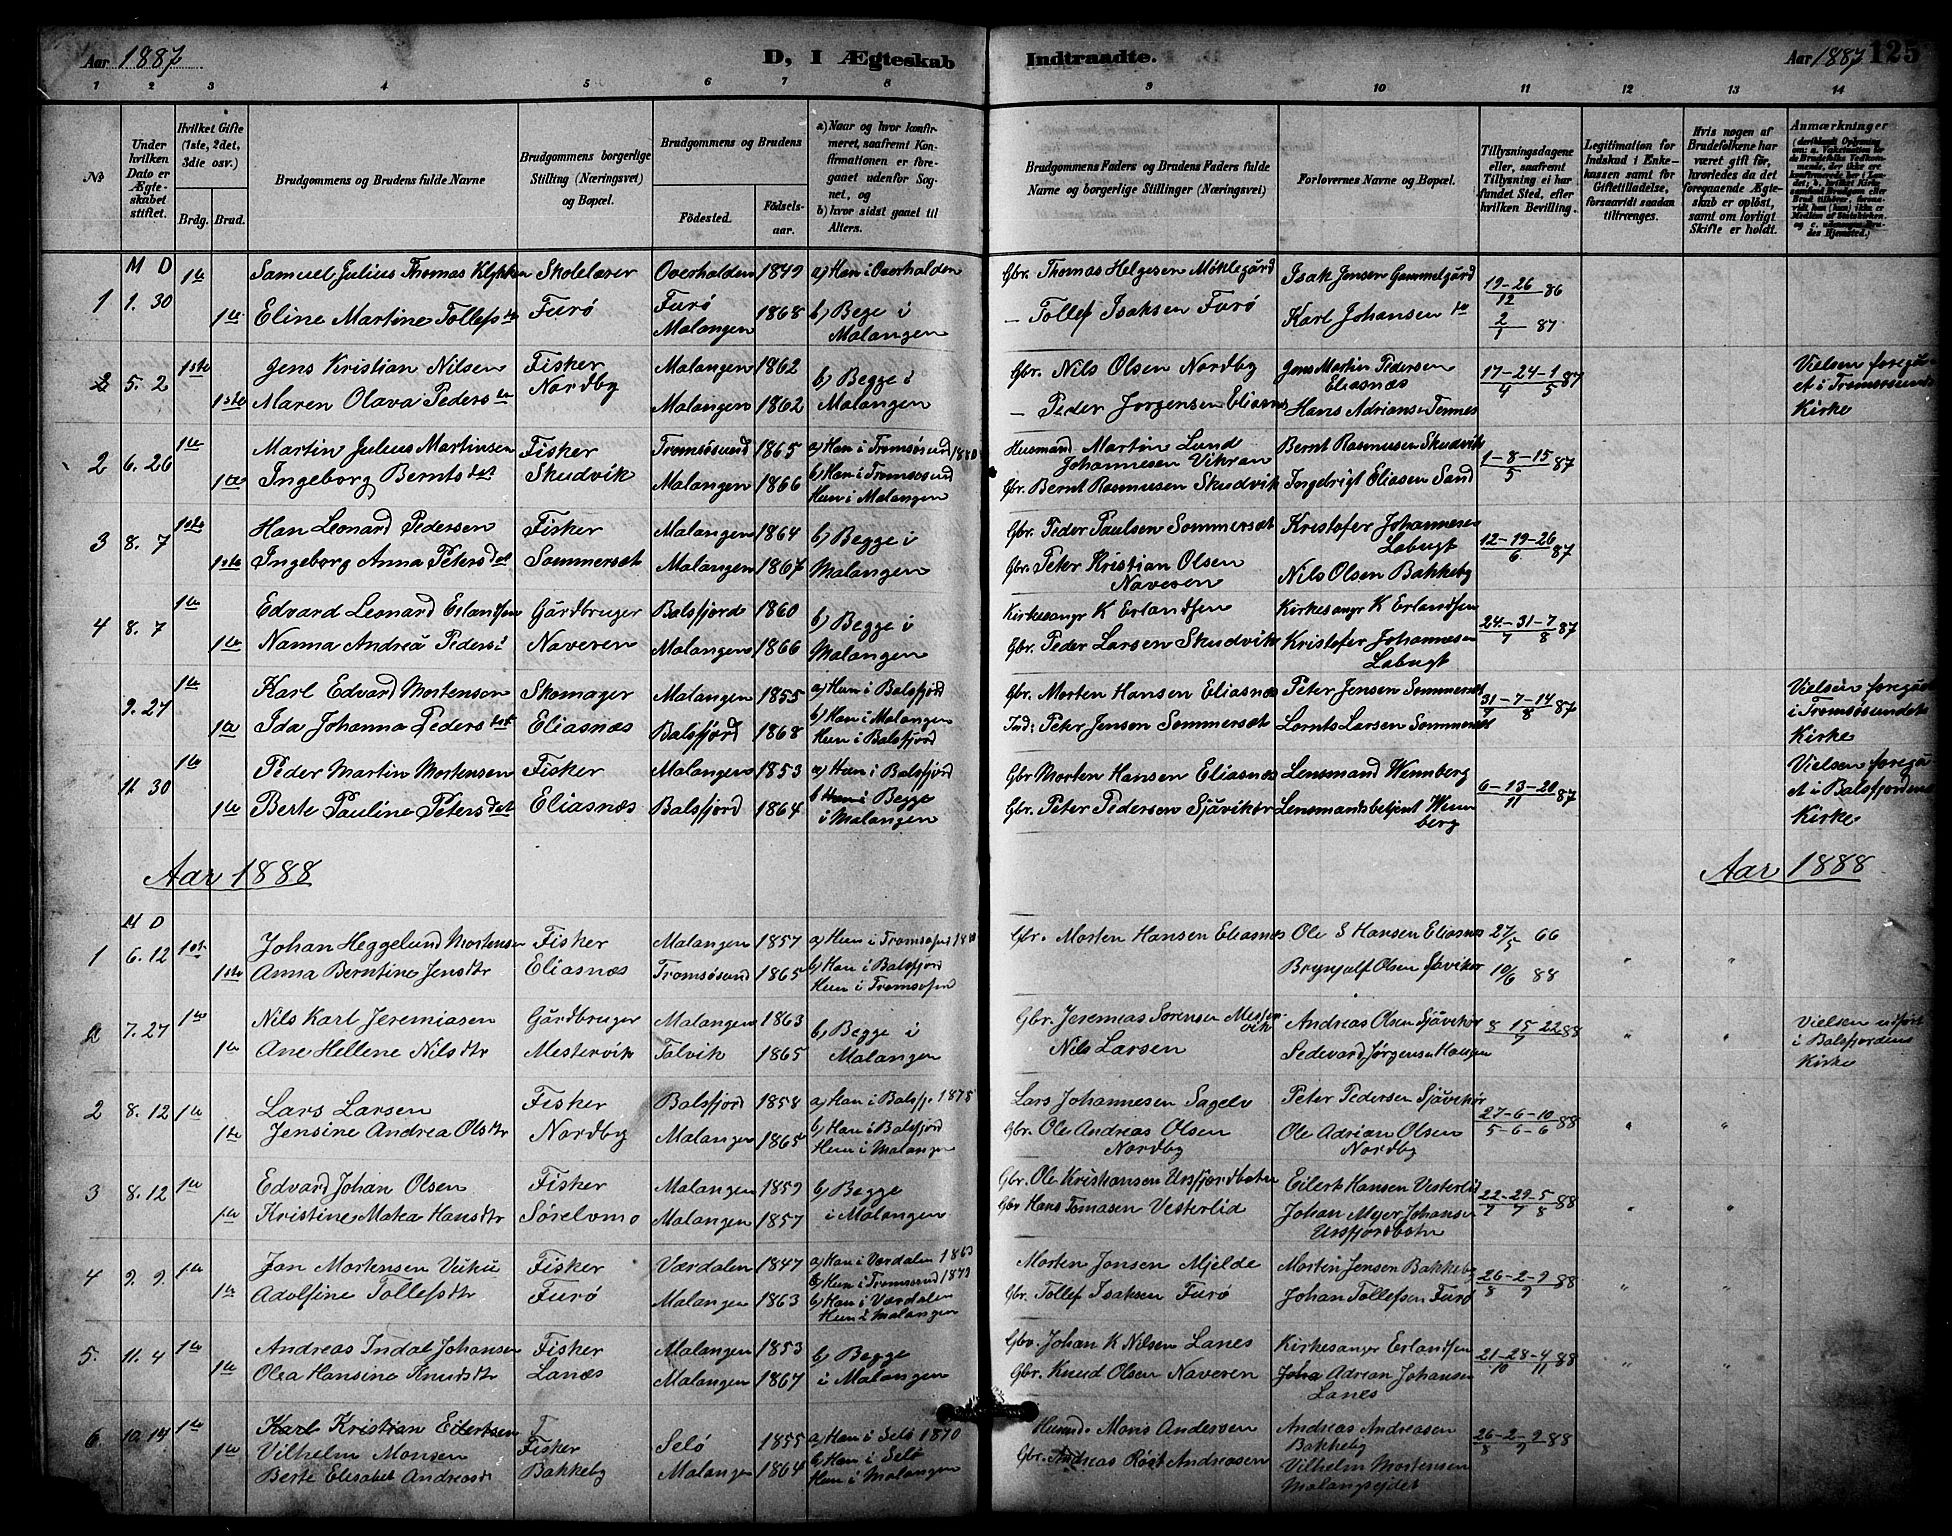 Aar 1887
D, I Ægteskab Indtraadte.
Aar 1887 125
1 2 3 4 5 6 7 8 9 10 11 12 13 14
No
Under hvilken Dato er Ægteskabet stiftet.
Hvilket Gifte (1ste, 2det, 3die osv.)
Brdg. Brud.
Brudgommens og Brudens fulde Navne
Brudgommens borgerlige Stilling (Næringsvei) og Bopæl.
Brudgommens og Brudens
Födested.
Födselsaar.
a) Naar og hvor konfirmeret, saafremt Konfirmationen er foregaaet udenfor Sognet, og
b) hvor sidst gaaet til Alters.
Brudgommens Faders og Brudens Faders fulde Navne og borgerlige Stillinger (Næringsvei)
Forlovernes Navne og Bopæl.
Tillysningsdagene eller, saafremt Tillysning ei har fundet Sted, efter hvilken Bevilling.
Legitimation for Indskud i Enkekassen samt for Giftetilladelse, forsaavidt saadan tiltrænges.
Hvis nogen af Brudefolkene har været gift för, hvorledes da det foregaaende Ægteskab er oplöst, samt om lovligt Skifte er holdt.
Anmærkninger
M D
1 1. 30 1te Samuel Julius Thomas Skolelærer Overhalden 1849 a) Han i Overhalden Gbr. Thomas Helgesen Möklegård Isak Jensen Gammelgård 19-26/12 86
1te Eline Martine Tollefsdtr Furö Furö Malangen 1868 b) Bege i Malangen - Tollef Isaksen Furö Karl Johansen do 2/1 87
2 5. 2 1ste Jens Kristian Nilsen Fisker Malangen 1862 b) Begge i Malangen Gbr. Nils Olsen Nordby Jens Martin Pedersen Eliasnæs 17-24-1/4 5 87 Vielsen foregået i Tromsøsunds Kirke
1ste Maren Olava Peders dtr Nordby Malangen 1862 - Peder Jörgensen Eliasnæs Hans Adrians. Tennes
2 6. 26 1te Martin Julius Martinsen Fisker Tromsösund 1865 a) Han i Tromsösund 1880 Husmand Martin Lund Johannesen Vikran Bernt Rasmusen Skudvik 1-8-15/5 87
1te Ingeborg Bernts det Skudvik Malangen 1866 b) Han i Tromsösund Hun i Malangen Gbr. Bernt Rasmusen Skudvik Ingebrigt Eliasen Sand
3 8. 7 1ste Han Leonard Pedersen Fisker Malangen 1864 b) Begge i Malangen Gbr. Peder Paulsen Sommersæt Kristofer Johannesen Labugt 12-19-26/6 87
1ste Ingeborg Anna Peters det Sommersæt Malangen 1867 Gbr. Peter Kristian Olsen Naveren Nils Olsen Bakkeby
4 8. 7 1te Edvard Leonard Erlandsen Gårdbruger Balsfjord 1860 b) Begge i Malangen Kirkesangr K Erlandsen Kirkesangr K Erlandsen 24-31-7/7 8 87
1te Nanna Andrea Peders Naveren Malangen 1866 Gbr. Peder Larsen Skudvik Kristofer Johannesen Labugt
9. 27 1te Karl Edvard Mortensen Skomager Malangen 1855 a) Hun i Balsfjord Gbr. Morten Hansen Eliasnæs Peter Jensen Sommersæt 31-7-14/7 8 87 Vielsen foregået i Tromsøsundets Kirke
1te Ida Johanna Peders det Eliasnæs Balsfjord 1868 b) Han i Malangen Hun i Balsfjord Ind: Peter Jenson Sommersæt Lornts Larsen Sommersæt
11. 30 1te Peder Martin Mortensen Fisker Malangen 1853 a) Hun i Balsfjord Gbr Morten Hansen Eliasnæs Lensmand Wennberg 6-13-20/11 87 Vielsen foregået i Balsfjordens Kirke
1te Berte Pauline Peters det Eliasnæs Balsfjord 1864 b Begge i Malangen Gbr. Peter Pedersen Sjåvikor Lensmandsbetjent Wennberg
Aar 1888
Aar 1888
M D
1 6. 12 1st. Johan Heggelund Mortensen Fisker Malangen 1857 a) Hun i Tromsøsund Gbr. Morten Hansen Eliasnæs Ole S Hansen Eliasnæs 27/5 66
1ste Anna Berntine Jensdtr Eliasnæs Tromsösund 1865 b) Han i Balsfjord Hun i Tromsøsund Brynjulf Olsen Sjåvikor 10/6 88 " "
2 7. 27 1te Nils Karl Jeremiasen Gårdbruger Malangen 1863 b) Begge i Malangen Gbr. Jeremias Sörensen Mestervik Andreas Olsen Sjåvikor 8 15 22/7 88 " " Vielsen udfört i Balsfjordens Kirke
1te Ane Hellene Nilsdtr Mestervik Talvik 1865 Nils Larsen Sedevard Jörgensen Haugen
2 8. 12 1te Lars Larsen Fisker Balsfjord 1858 a) Han i Balsfj. 1875 Lars Johannesen Sagelv Peter Pedersen Sjåvikor 27-6-10/5-6-6 88 " "
1te Jensine Andrea Olsdtr Nordby Malangen 1865 b) Han i Balsfjord Hun i Malangen Gbr. Ole Andreas Olsen Nordby Ole Adrian Olsen Nordby
3 8. 12 1te Edvard Johan Olsen Fisker Malangen 1859 b) Begge i Malangen Gbr. Ole Kristiansen Ursfjordbotn Eilert Hansen Vesterlid 22-29-5/7 7 8 88 " "
1te Kristine Matea Hansdtr Sörelvmo Malangen 1857 Gbr Hans Tomasen Vesterlid Johan Meyer Johansen Ursfjordbotn
4 9. 9. 1te Jon Mortensen Fisker Værdalen 1847 a) Han i Værdalen 1863 Hun i Tromsösund 1879 Morten Jonsen Mjelde Mortin Jensen Bakkeby 26-2-9/8 9 88 " "
1te Adolfine Tollefsdtr Furö Malangen 1863 b) Han i Værdalen Hun i Malangen Gbr. Tollef Isaksen Furö Johan Tollefsen Furö
5. 11. 4 1te Andreas Indal Johansen Fisker Malangen 1853 b) Begge i Malangen Gbr. Johan K Nilsen Lanes Kirkesangr Erlandsen 21-28-4/10 11 88 " "
1te Olea Hansine Knudsdtr Lanæs Malangen 1867 Gbr. Knud Olsen Naveren Adrian Johansen Lanes
6 10. 14 1te Karl Kristian Eilertsen Vilhelm Monsen Fisker Selö 1855 a) Han i Selö 1870 Husmd. Mons Andersen Andreas Andreasen Bakkeby 26-2-9/8 9 88
1te Berte Elisabet Andreasdtr Bakkeby Malangen 1864 b) Han i Selö Hun i Malangen Gbr. Andreas Röst Andreasen Vilhelm Mortensen Malangseidet